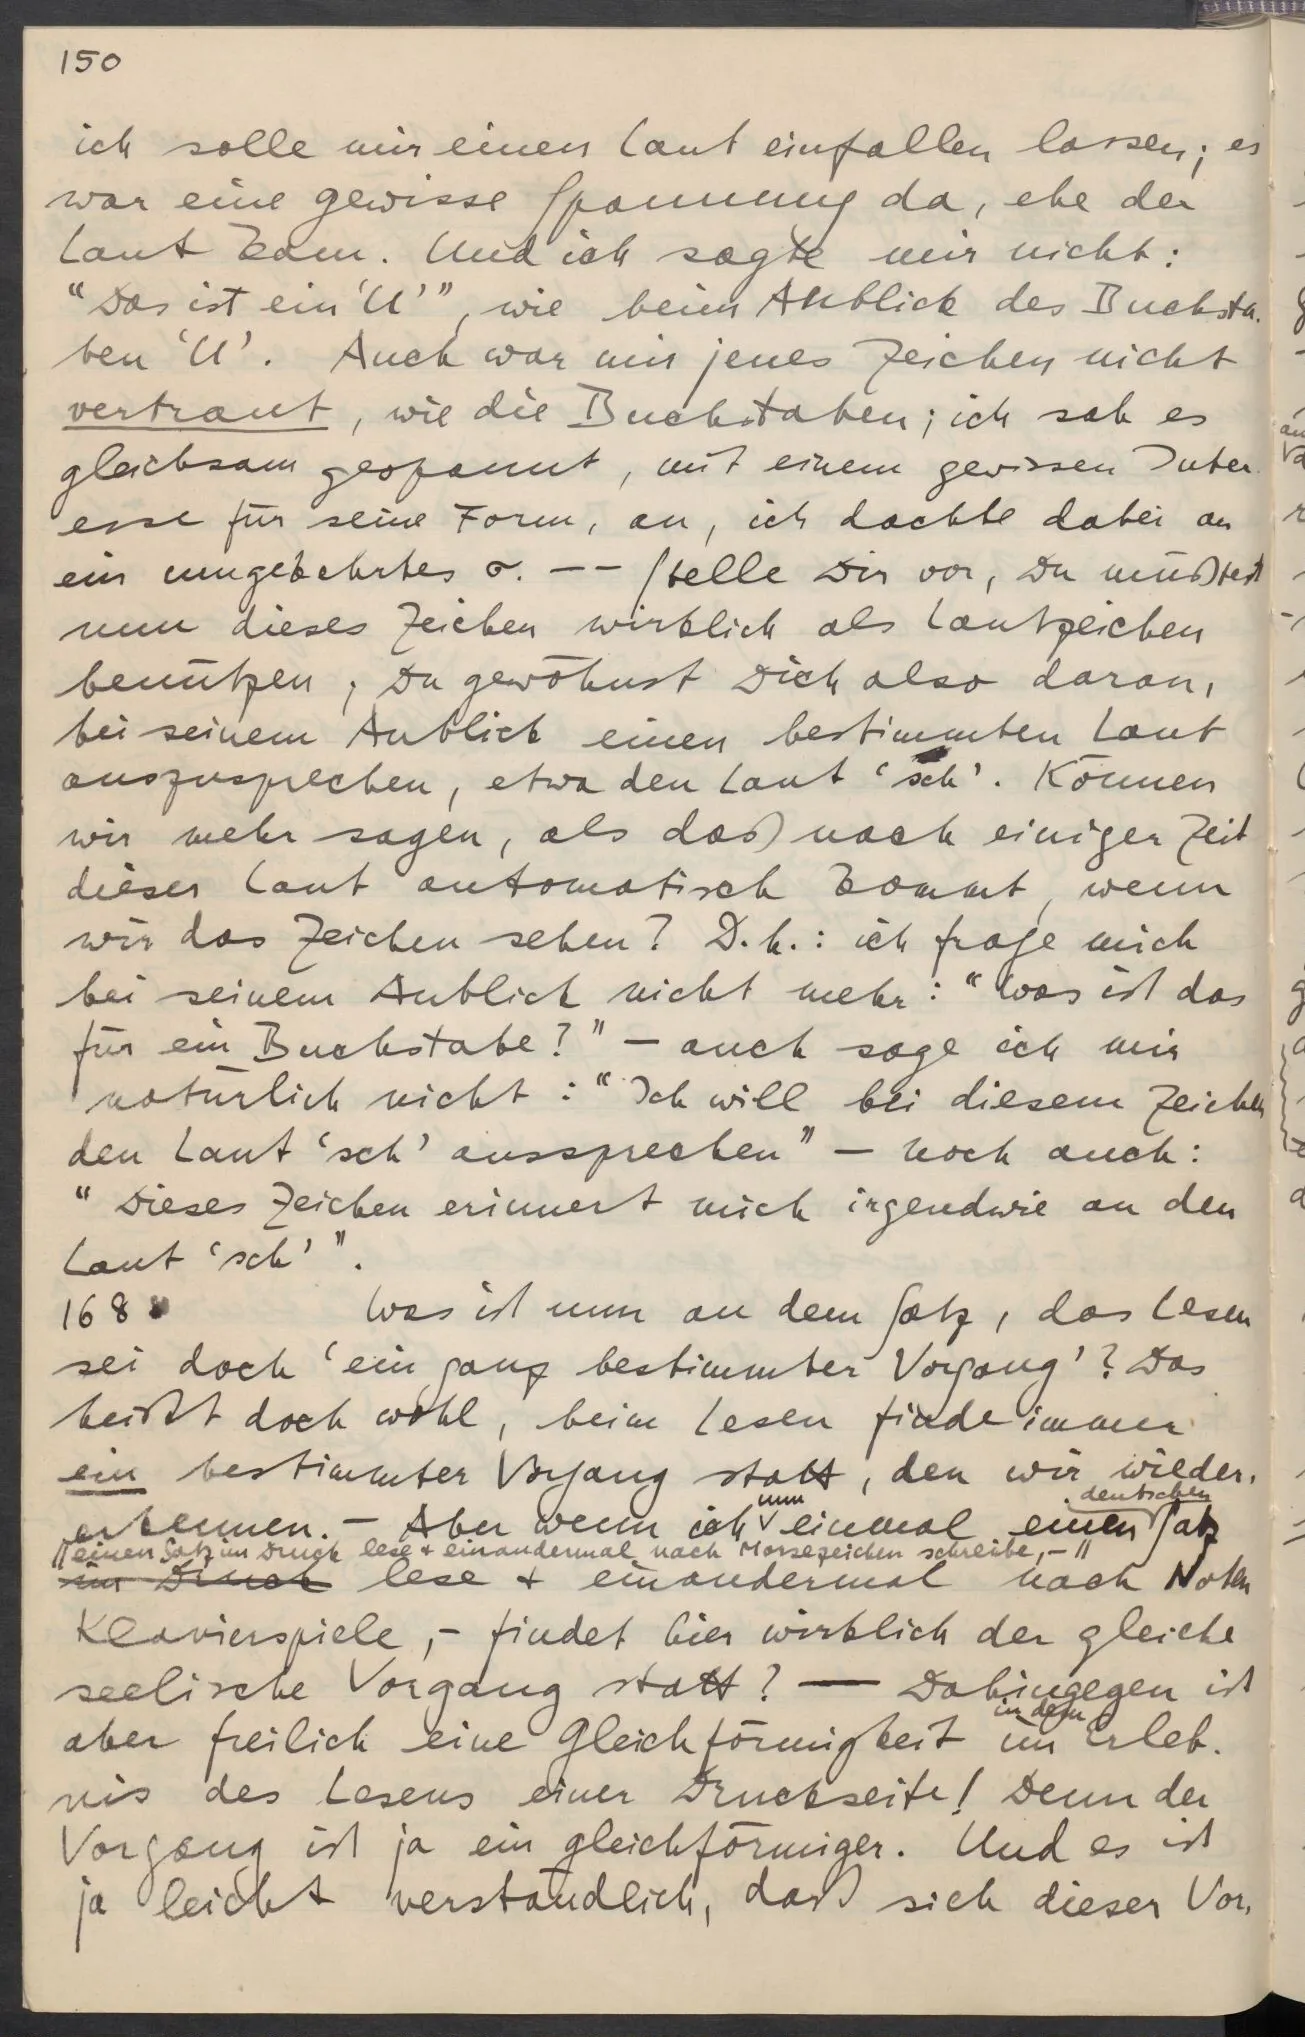 150
ich solle mir einen Laut einfallen lassen; es
war eine gewisse Spannung da, ehe der
Laut kam. Und ich sagte mir nicht:
"Das ist ein 'U'", wie beim Anblick des Buchsta-
ben 'U'. Auch war mir jenes Zeichen nicht
vertraut, wie die Buchstaben; ich sah es
gleichsam gespannt, mit einem gewissen Inter-
esse für seine Form, an, ich dachte dabei an
ein umgekehrtes σ. –– Stelle Dir vor, Du müßtest
nun dieses Zeichen wirklich als Lautzeichen
benützen; Du gewöhnst Dich also daran,
bei seinem Anblick einen bestimmten Laut
auszusprechen, etwa den Laut 'sch'. Können
wir mehr sagen, als daß nach einiger Zeit
dieser Laut automatisch kommt, wenn
wir das Zeichen sehen? D.h.: ich frage mich
bei seinem Anblick nicht mehr: "Was ist das
für ein Buchstabe?" – auch sage ich mir
natürlich nicht: "Ich will bei diesem Zeichen
den Laut 'sch' aussprechen" – noch auch:
"Dieses Zeichen erinnert mich irgendwie an den
Laut 'sch'".
168 Was ist nun an dem Satz, das Lesen
sei doch 'ein ganz bestimmter Vorgang'? Das
heißt doch wohl, beim Lesen finde immer
ein bestimmter Vorgang statt, den wir wieder-
nun deutschen
erkennen. – Aber wenn ich einmal einen Satz
// einen Satz im Druck lese + einandermal nach Morsezeichen schreibe, – //
im Druck lese + einandermal nach Noten
Klavierspiele, – findet hier wirklich der gleiche
seelische Vorgang statt? — Dahingegen ist
in dem
aber freilich eine Gleichförmigkeit im Erleb-
nis des Lesens einer Druckseite! Denn der
Vorgang ist ja ein gleichförmiger. Und es ist
ja leicht verständlich, daß sich dieser Vor-